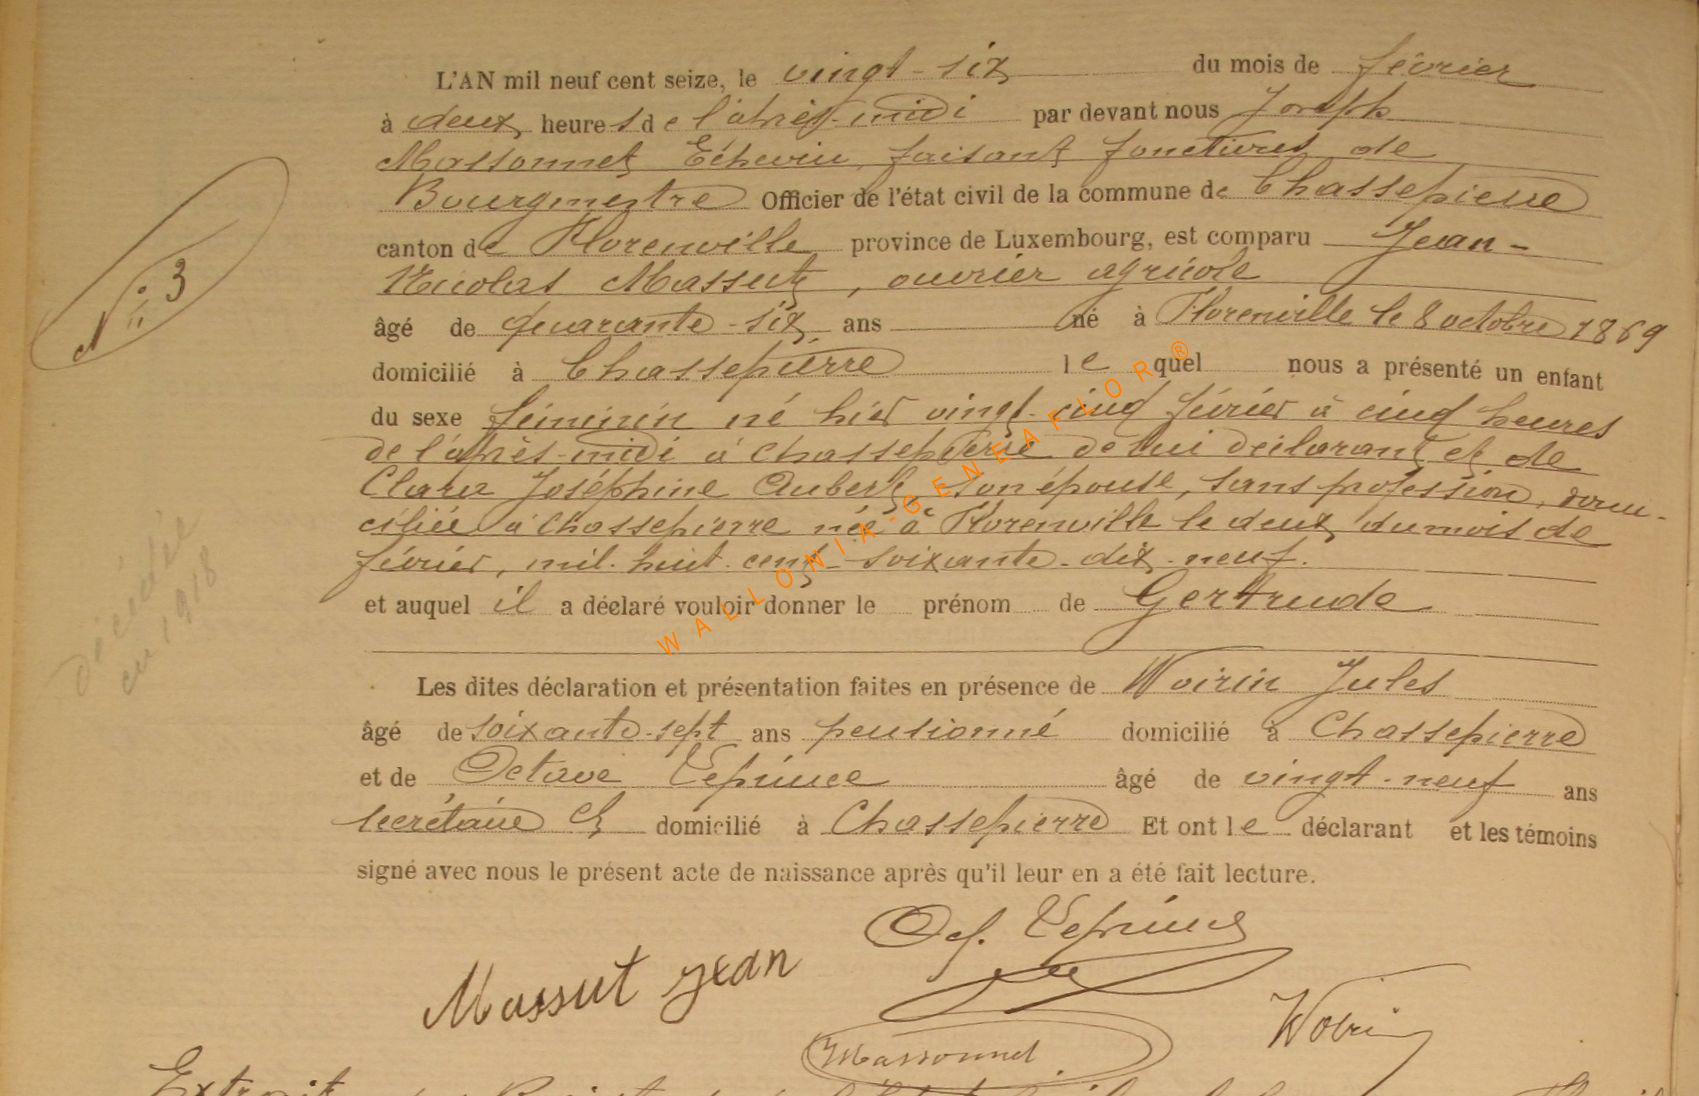 L'AN mil neuf cent seize, le vingt-six du mois de février
à deux heures de l'après-midi par devant nous Joseph
Massonnet Échevin, faisant fonctions de
Bourgmestre Officier de l'état civil de la commune de Chassepierre
canton de Florenville province de Luxembourg, est comparu Jean-
Nicolas Massut, ouvrier agricole
âgé de quarante-six ans né à Florenville le 8 octobre 1869
domicilié à Chassepierre lequel nous a présenté un enfant
du sexe féminin né hier vingt-cinq février à cinq heures
de l'après-midi à Chassepierre de lui déclarant et de
Clara Joséphine Aubert, son épouse, sans profession, domi-
ciliée à Chassepierre née à Florenville le deux du mois de
février, mil-huit-cent-soixante-dix-neuf.
et auquel il a déclaré vouloir donner le prénom de Gertrude
Les dites déclaration et présentation faites en présence de Woirin Jules
âgé de soixante-sept ans pensionné domicilié à Chassepierre
et de Octave Leprince âgé de vingt-neuf ans
secrétaire ct domicilié à Chassepierre Et ont le déclarant et les témoins
signé avec nous le présent acte de naissance après qu'il leur en a été fait lecture.
Oct. Leprince
Massut Jean
Woirin
Massonnet
N° 3
décédée
en 1918
WALLONIA-GENEAFLOR®
Extrait du